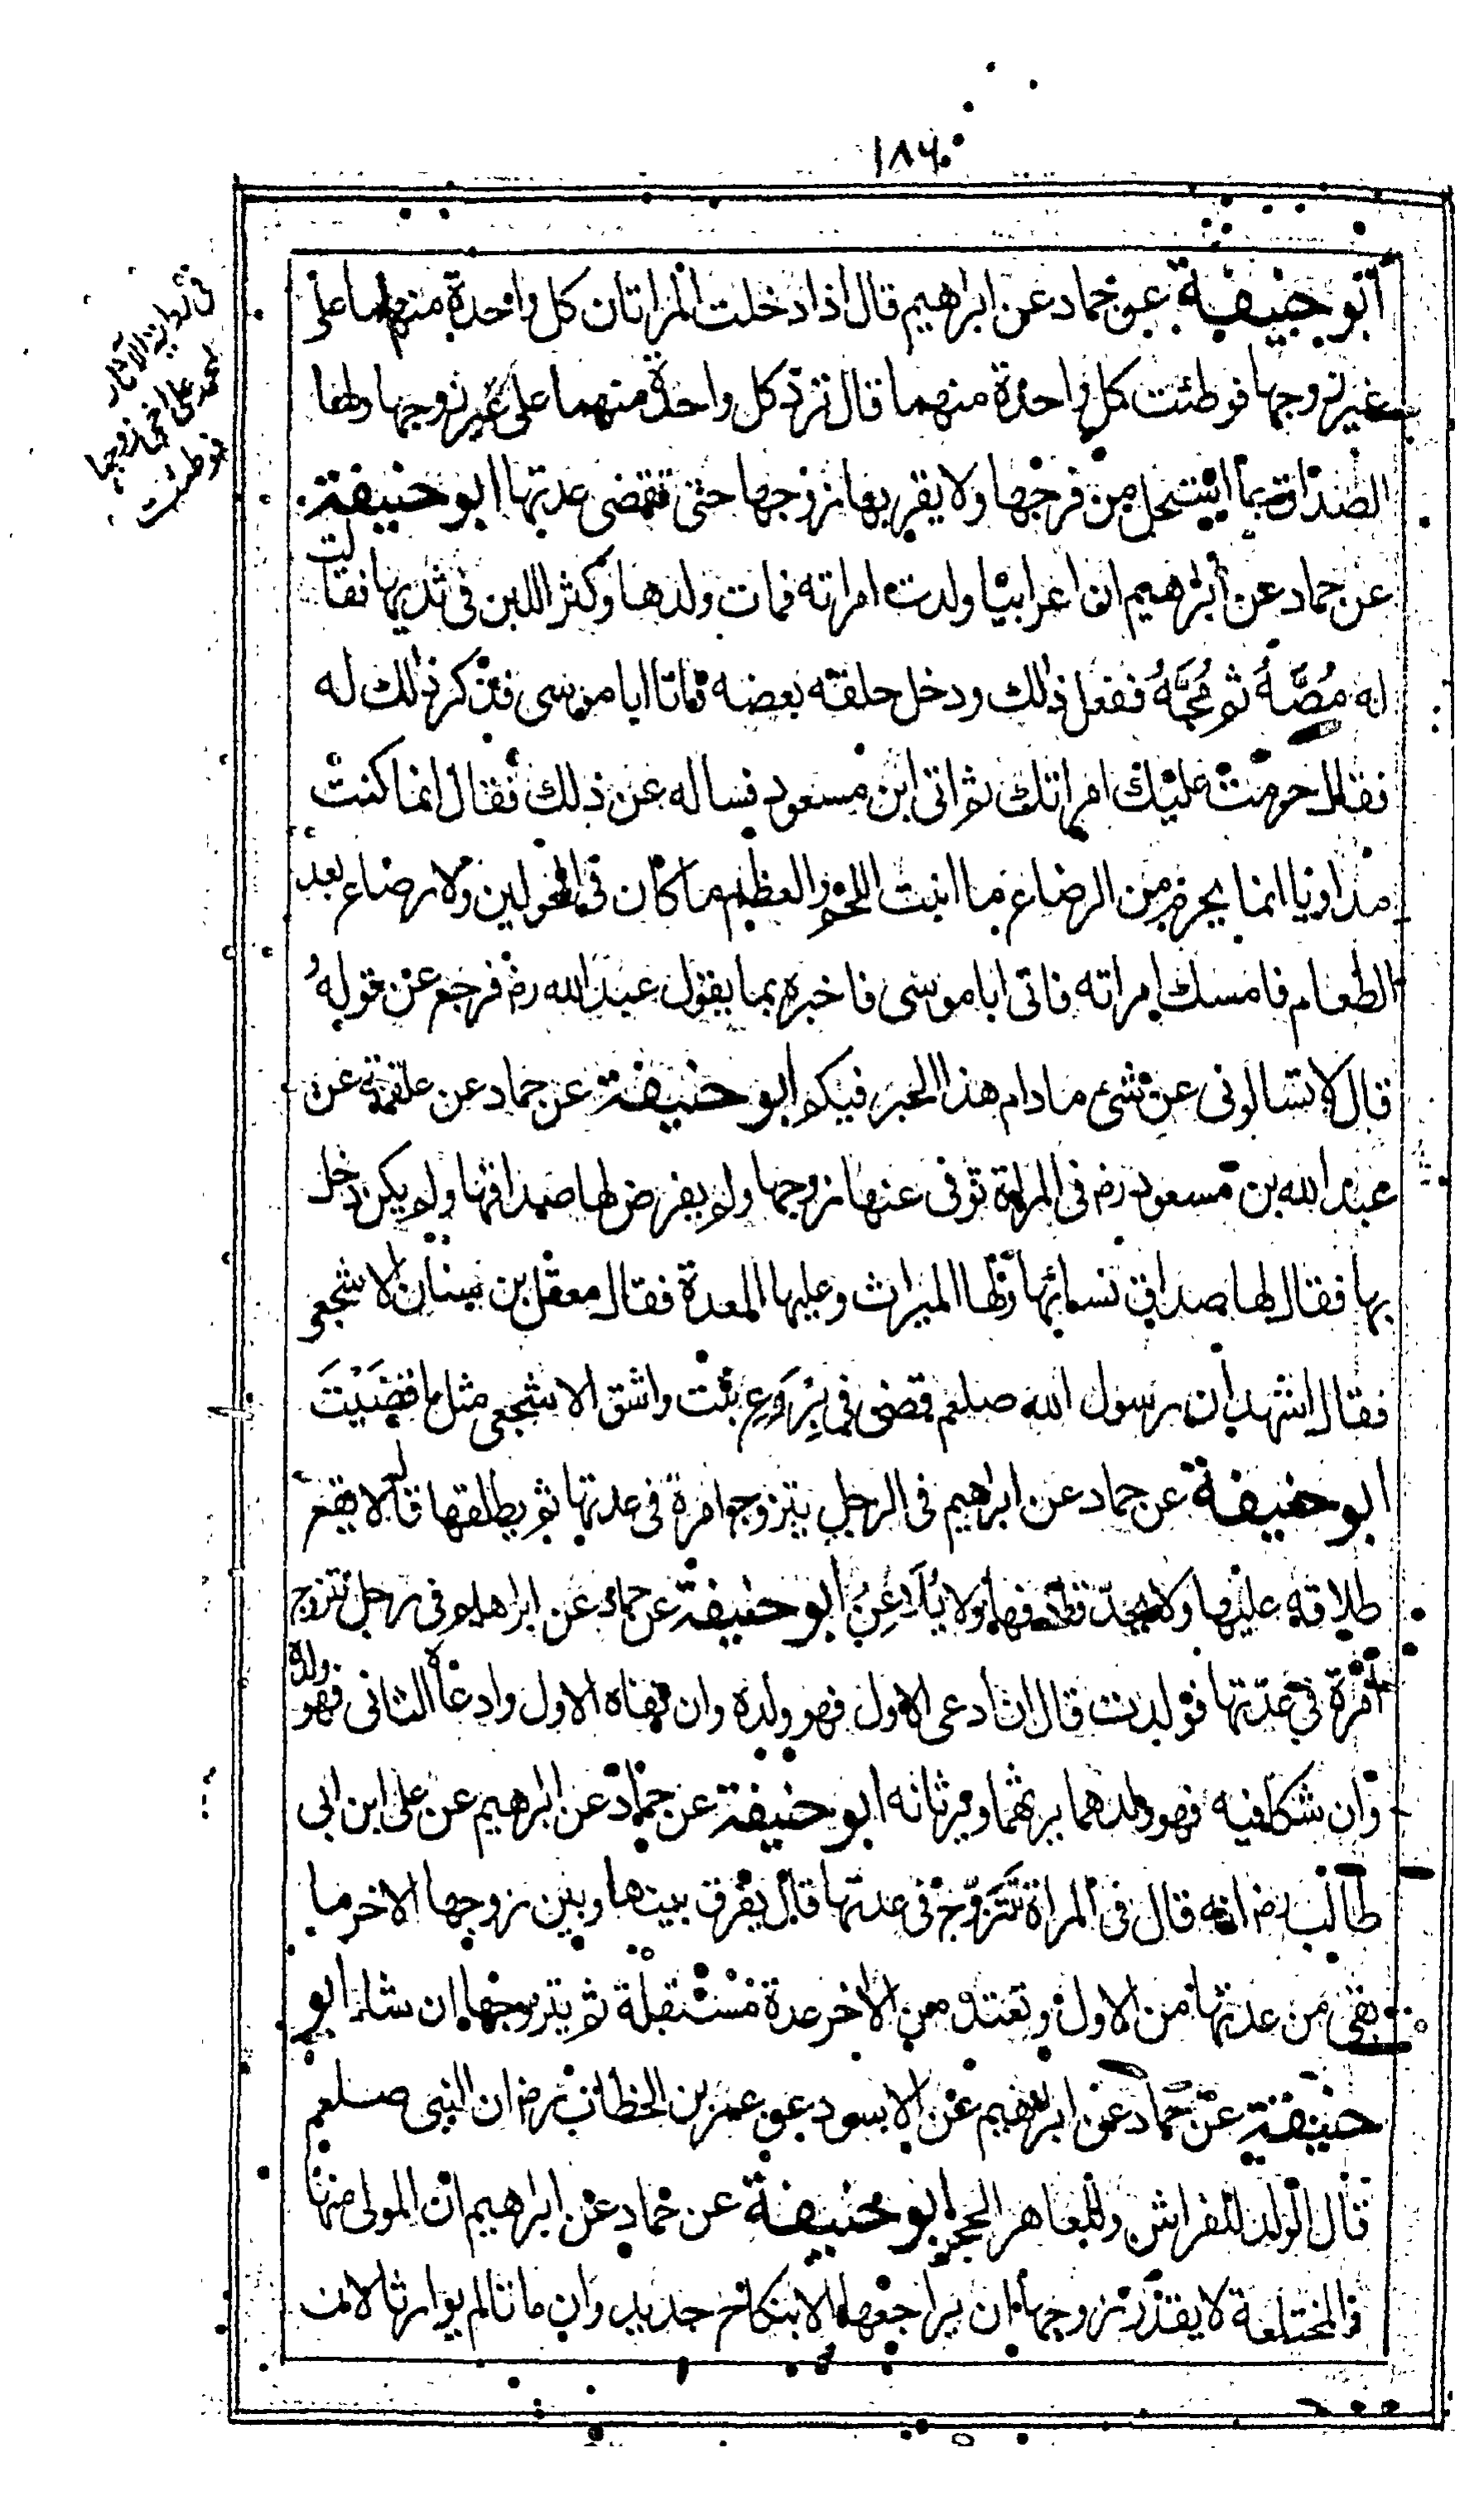 ١٨٦
ابو حنيفة عن حماد عن ابراهيم قال اذا دخلت المراتان كل واحدة منهما على
غير زوجها فوطئت كل واحدة منهما قال ترد كل واحدة منهما على غير زوجها ولها
الصداق بما استحل من فرجها ولا يقربها زوجها حتى تنقضى عدتها ابو حنيفة
عن حماد عن ابرهيم ان اعرابيا ولدت امراته فمات ولدها وكثر اللبن فى ثديها فقالت
له مُصَّهُ ثم مُجَّهُ ففعل ذلك ودخل حلقه بعضه فاتا ابا موسى فذكر ذلك له
فقال حرمت عليك امراتك ثم اتى ابن مسعود فساله عن ذلك فقال انما كنت
مداويا انما يحرم من الرضاع ما انبت اللحم والعظم ما كان فى الحولين ولا رضاع بعد
الطعام فامسك امراته فاتى ابا موسى فاخبره بما يقول عبد الله رض فرجع عن قوله
قال لا تسالونى عن شىء ما دام هذا الحبر فيكم ابو حنيفة عن حماد عن علقمة عن
عبد الله بن مسعود رض فى المراة توفى عنها زوجها ولم يفرض لها صداقها ولم يكن دخل
بها فقال لها صداق نسائها ولها الميراث وعليها العدة فقال معقل بن سنان الاشجعى
فقال اشهد ان رسول الله صلعم قضى فى بِرْوَع بنت واشق الاشجعى مثل ما قضَيْتَ
ابو حنيفة عن حماد عن ابرهيم فى الرجل يتزوج امرة فى عدتها ثم يطلقها قال لا يقع
طلاقه عليها ولا يحد قاذفها ولا يُلَاعِنُ ابو حنيفة عن حماد عن ابراهيم فى رجل تتزوج
امرة فى عدتها فولدت قال ان ادعى الاول فهو ولده وان نفاه الاول وادعاه الثانى فهو ولده
وان شكا فيه فهو ولدهما يرثهما ويرثانه ابو حنيفة عن حماد عن ابرهيم عن على ابن ابى
طالب رض انه قال فى المراة تَتَزوّج فى عدتها قال يفرق بينها وبين زوجها الاخر ما
بقى من عدتها من الاول وتعتد من الاخر عدة مستقبلة ثم يتزوجها ان شاء ابو
حنيفة عن حماد عن ابرهيم عن الاسود عن عمر بن الخطاب رض ان النبى صلعم
قال الولد للفراش وللعاهر الحجر ابو حنيفة عن حماد عن ابرهيم ان المولى منها
والمختلعة لا يقدر زوجها ان يراجعها الا بنكاح جديد وان ماتا لم يتوارثا لانه